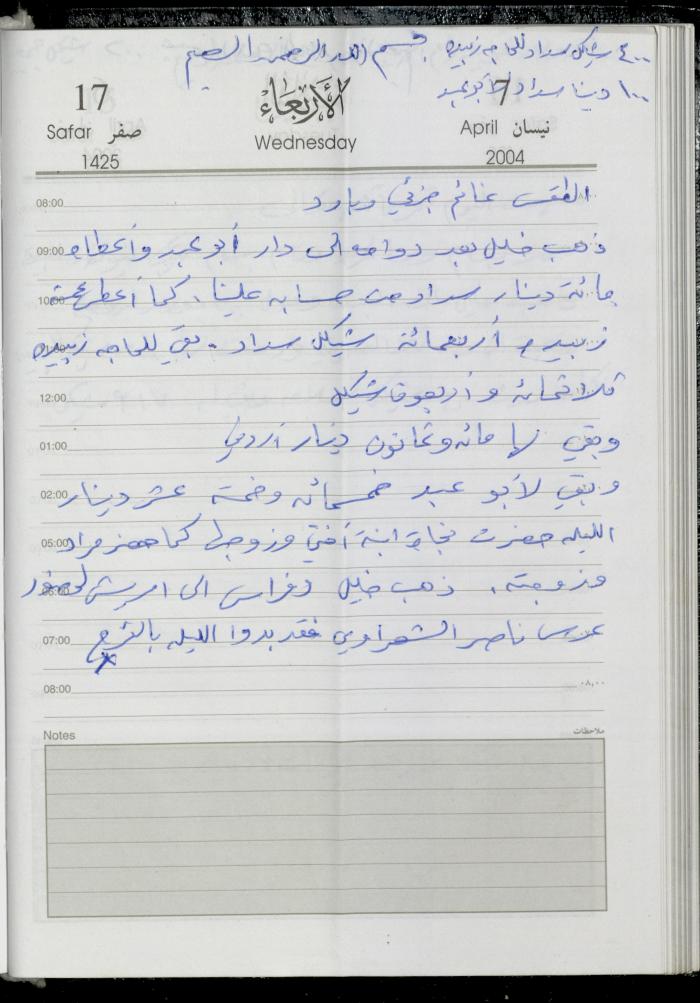 ٤٠٠ شيكل سداد للحاجه زبيده بسم الله الرحمن الرحيم
١٠٠ دينار سداد لأبو عبد
17 الأربعاء 7
Safar صفر Wednesday April نيسان
1425 2004
08:00 الطقس غائم جزئي وبارد
09:00 ذهب خليل بعد دوامه الى دار أبو عبد وأعطاه
10:00 مائة دينار سداد من حسابه علينا. كما أعطى
زبيده أربعمائة شيكل سداد. بقي للحاجه زبيده
12:00 ثلاثمائه وأربعون شيكل
01:00 وبقي لها مائه وثمانون دينار أردني
02:00 وبقي لأبو عبد خمسمائه وخمسة عشر دينار
05:00 الليله حضرت نجاح ابنة أختي وزوجها كما حضر مراد
06:00 وزوجته. ذهب خليل وفراس الى لحضور
07:00 عرس ناصر الشعراوي فقد بدوا الليله بالفرح
08:00 ٠٨,٠٠
Notes ملاحظات